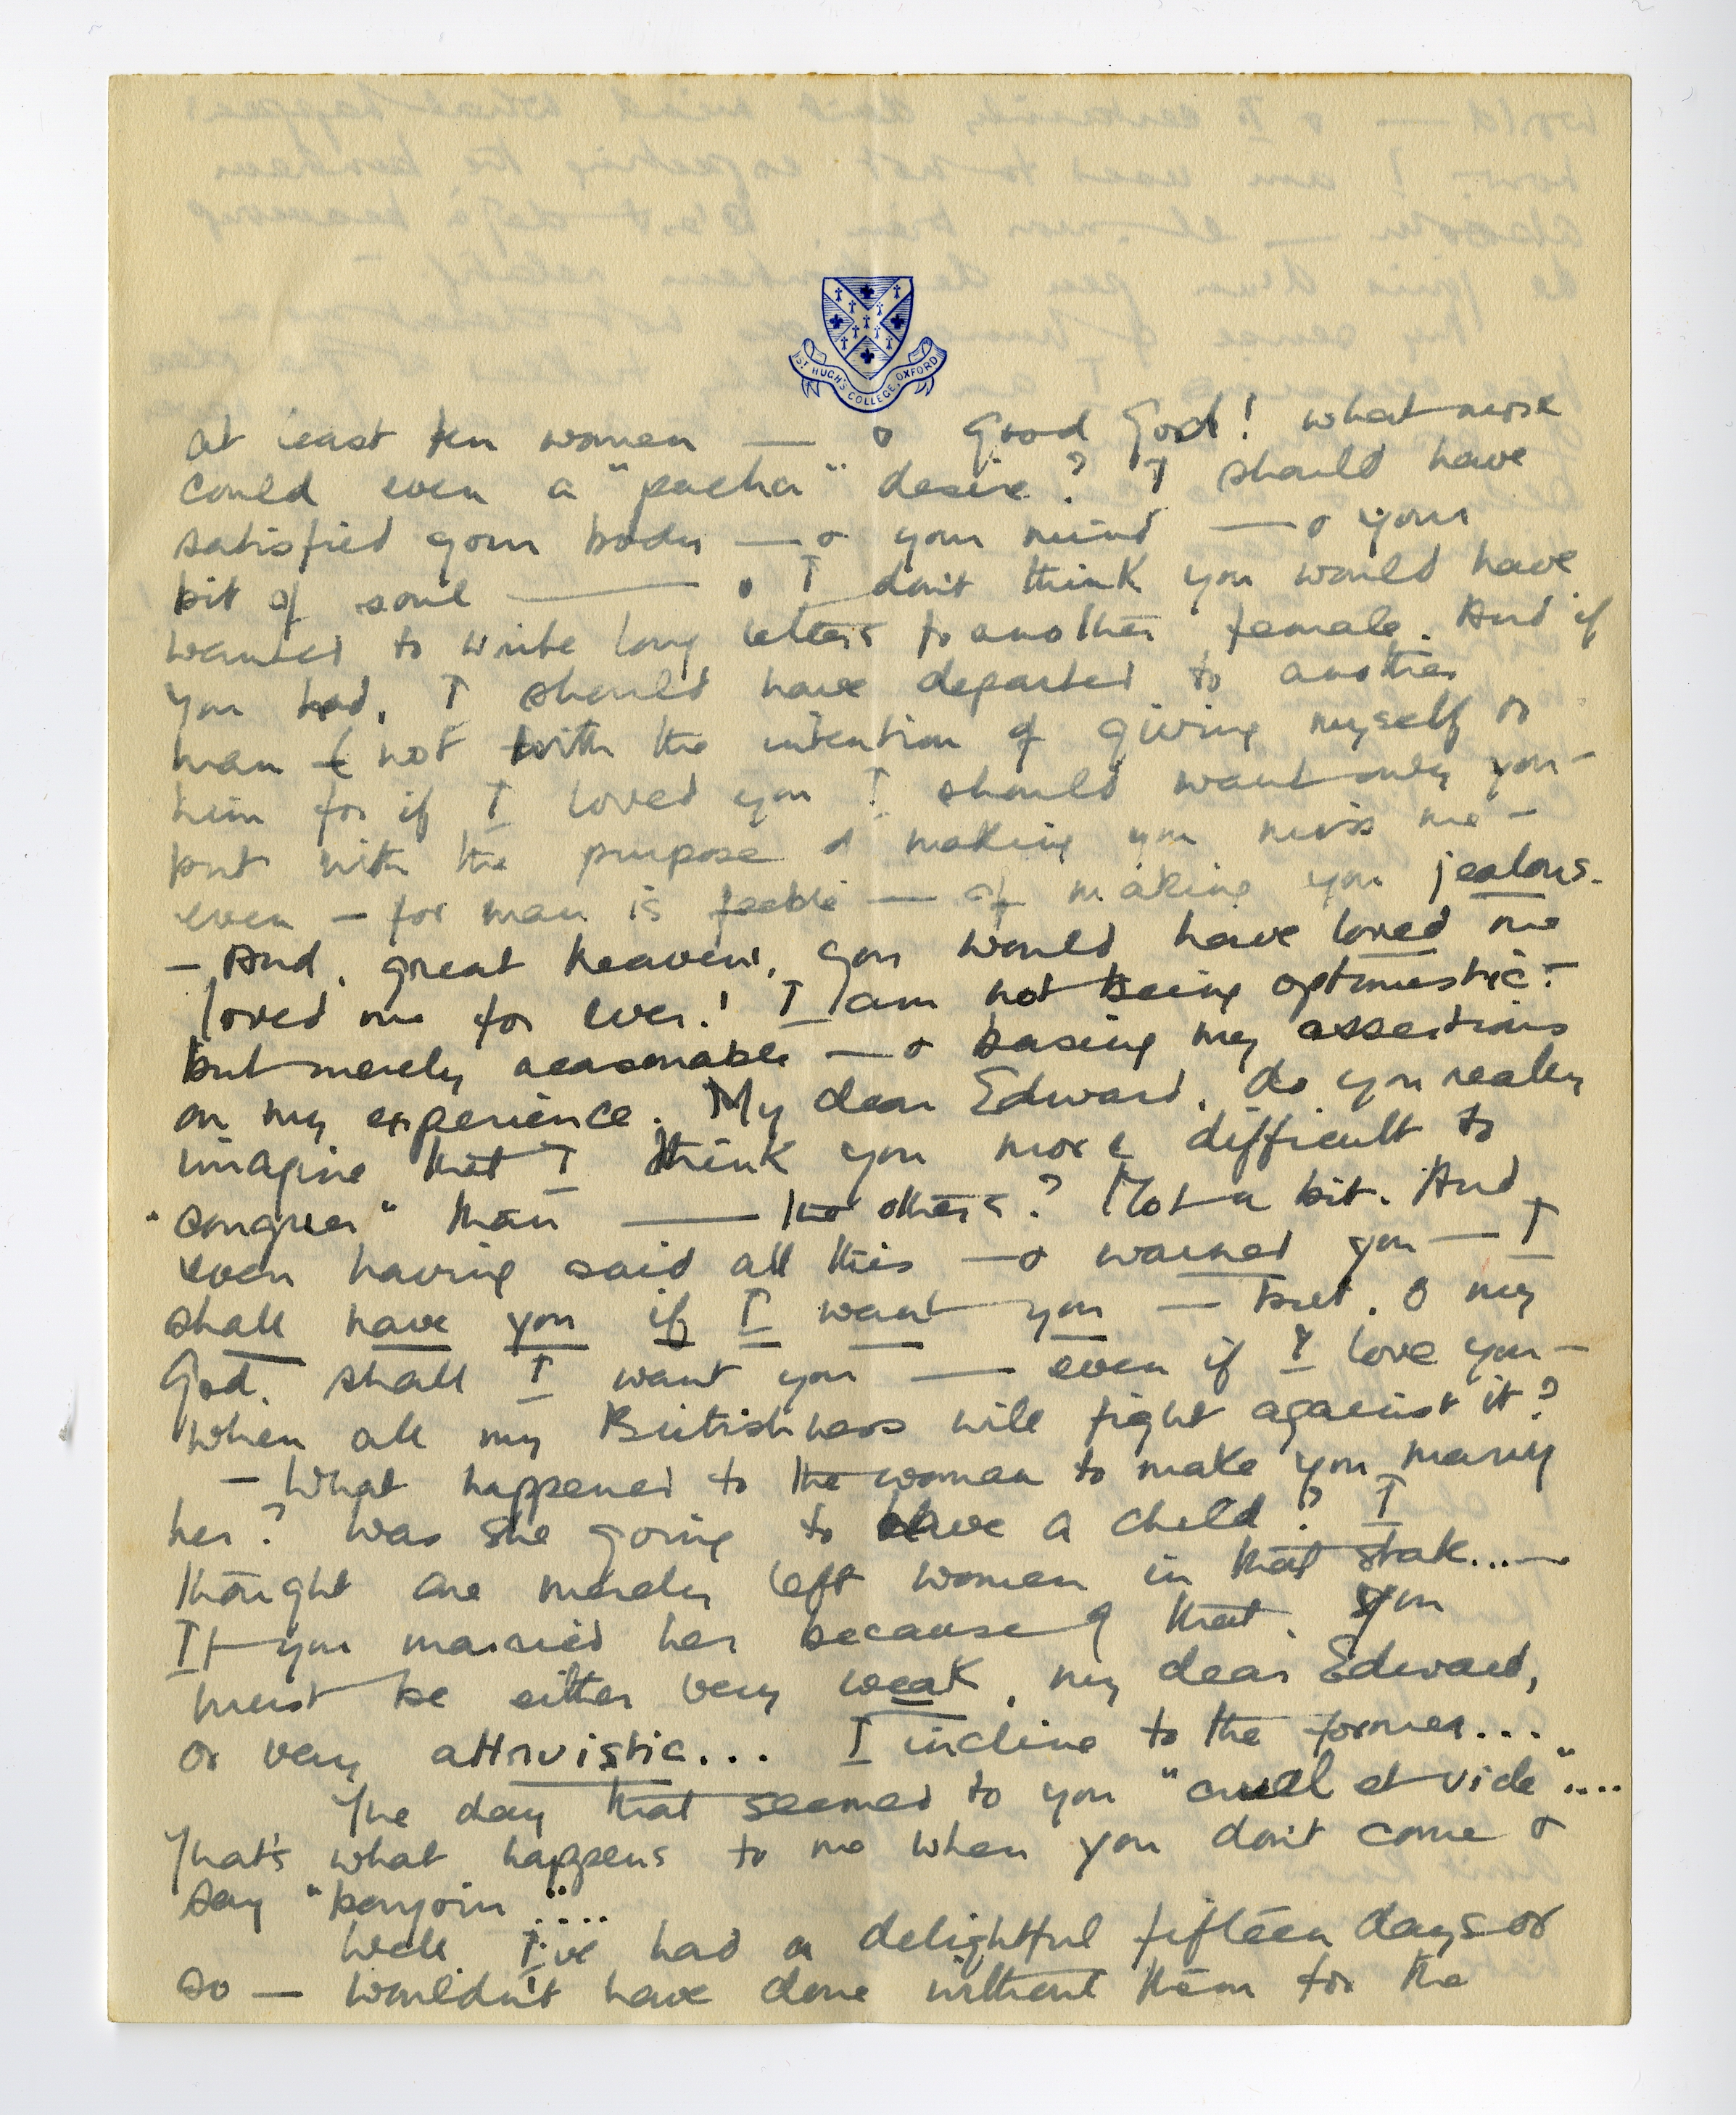 ST HUGH'S COLLEGE, OXFORD
at least ten women — & Good God! what more
could even a "pacha" desire? I should have
satisfied your body — & your mind — & your
bit of soul — & I don't think you would have
wanted to write long letters to another female. And if
you had, I should have departed to another
man — (not with the intention of giving myself to
him for if I loved you I should want only you —
but with the purpose of making you miss me —
even — for man is feeble — of making you jealous.
— And, great heavens, you would have loved me
loved me for ever! I am not being optimistic —
but merely reasonable — & basing my assertions
on my experience. My dear Edward, do you really
imagine that I think you more difficult to
"conquer" than — the others? Not a bit. And
even having said all this — & warned you — I
shall have you if I want you — but, O my
God, shall I want you — even if I love you —
when all my Britishness will fight against it?
— What happened to the woman to make you marry
her? Was she going to have a child? I
thought one merely left women in that state...—
If you married her because of that, you
must be either very weak, my dear Edward,
or very altruistic... I incline to the former...
The day that seemed to you "cruel et vide"....
That's what happens to me when you don't come &
say "bonjour"....
Well, I've had a delightful fifteen days or
so — wouldn't have done without them for the